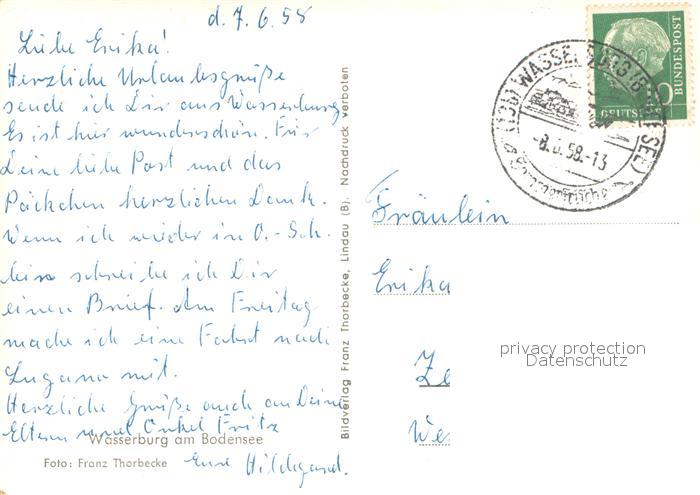 d. 7. 6. 58
Liebe Erika!
Herzliche Urlaubsgrüße
sende ich Dir aus Wasserburg.
Es ist hier wunderschön. Für
Deine liebe Post und das
Päckchen herzlichen Dank.
Wenn ich wieder in O.-Sch.
bin schreibe ich Dir
einen Brief. Am Freitag
mache ich eine Fahrt nach
Lugano mit.
Herzliche Grüße auch an Deine
Eltern und Onkel Fritz
Eure Hildegard.
Wasserburg am Bodensee
Foto: Franz Thorbecke
Bildverlag Franz Thorbecke, Lindau (B). Nachdruck verboten
DEUTSCHE
BUNDESPOST
10
(13b) WASSERBURG (BODENSEE)
-8.6.58.-13
Fräulein
Erika
Ze
We
privacy protection
Datenschutz